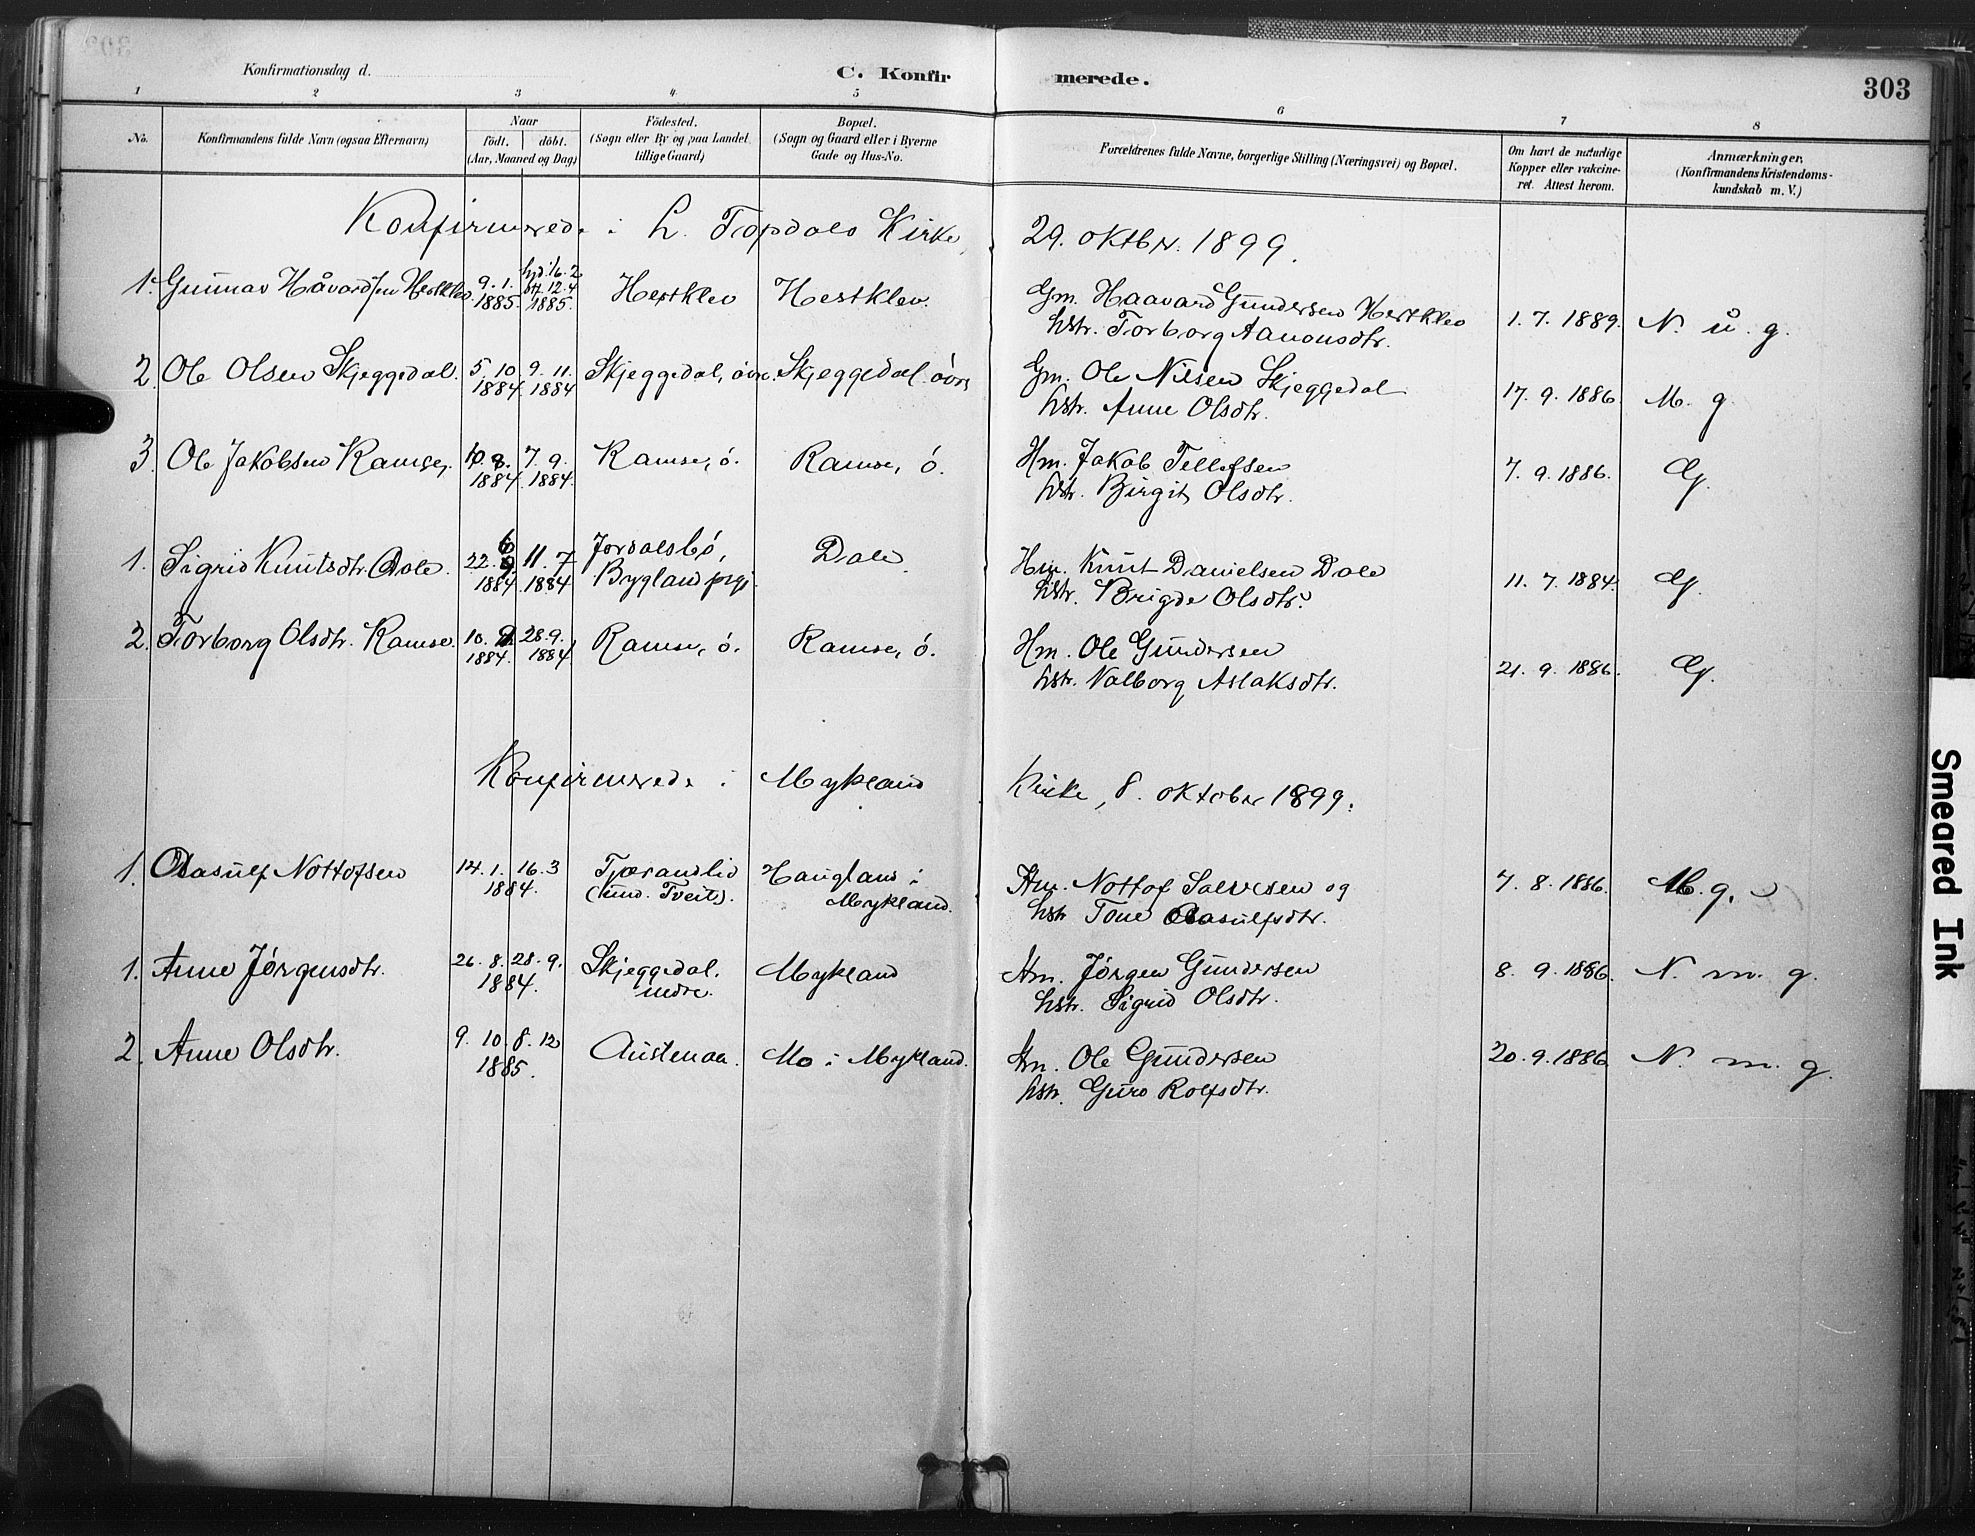 303
Konfirmationsdag d.
C. Konfirmerede.
1 2 3 4 5 6 7 8
No.
Konfirmandens fulde Navn (ogsaa Efternavn)
Naar
födt. döbt.
(Aar, Maaned og Dag)
Födested.
(Sogn eller By og paa Landet
tillige Gaard)
Bopæl.
(Sogn og Gaard eller i Byerne
Gade og Hus-No.
Forældrenes fulde Navne, borgerlige Stilling (Næringsvei) og Bopæl.
Om havt de naturlige
Kopper eller vakcine-
ret. Attest herom.
Anmærkninger.
(Konfirmandens Kristendoms-
kundskab m. V.)
Konfirmerede i h. Topdals Kirke 29. oktbr. 1899.
1. Gunnar Håvardsen Hestklev 9. 1. 1885 hjd. 16. 2 bt. 12. 4 1885. Hestklev Hestklev.
Gm. Haavard Gundersen Hestklev
hstr. Torborg Aanonsdtr. 1. 7. 1889. N. å. g.
2. Ole Olsen Skjeggedal. 5. 10 1884 9. 11. 1884 Skjeggedal, øvre. Skjeggedal øvre
Gm. Ole Nilsen Skjeggedal
hstr. Anne Olsdtr. 17. 9. 1886 M. g.
3. Ole Jakobsen Ramse, 10. 8. 1884. 7. 9. 1884. Ramse, ó. Ramse, ó.
Hm. Jakob Tellefsen
hstr. Birgit Olsdtr. 7. 9. 1886. G.
1. Sigrid Knutsdtr. Dale. 22. 6 1884 11. 7 1884 Jordalsbó,
Bygland prgj. Dale
Hm. Knut Danielsen Dale
hstr. Brigde Olsdtr. 11. 7. 1884. G.
2. Torborg Olsdtr. Ramse. 10. 9. 1884. 28. 9. 1884 Ramse, ó. Ramse, ó.
Hm. Ole Gundersen
hstr. Valborg Aslaksdtr. 21. 9. 1886. G.
Konfirmerede i Mykland Kirke, 8. oktober 1899.
1. Aasulf Nottofsen 14. 1. 16. 3 1884. Tjøranslid
(und. Tveit). Haugland i
Mykland.
Hm. Nottof Salvesen og
hstr. Tone Aasulfsdtr. 7. 8. 1886. M. g.
1. Anne Jørgensdtr. 26. 8. 28. 9. 1884. Skjeggedal.
nedre. Mykland
Hm. Jørgen Gundersen
hstr. Sigrid Olsdtr. 8. 9. 1886. N. m. g.
2. Anne Olsdtr. 9. 10. 8. 12 1885. Austenaa. Mo i Mykland.
Hm. Ole Gundersen
hstr. Guro Rolfsdtr. 20. 9. 1886 N. m. g.
Smeared Ink